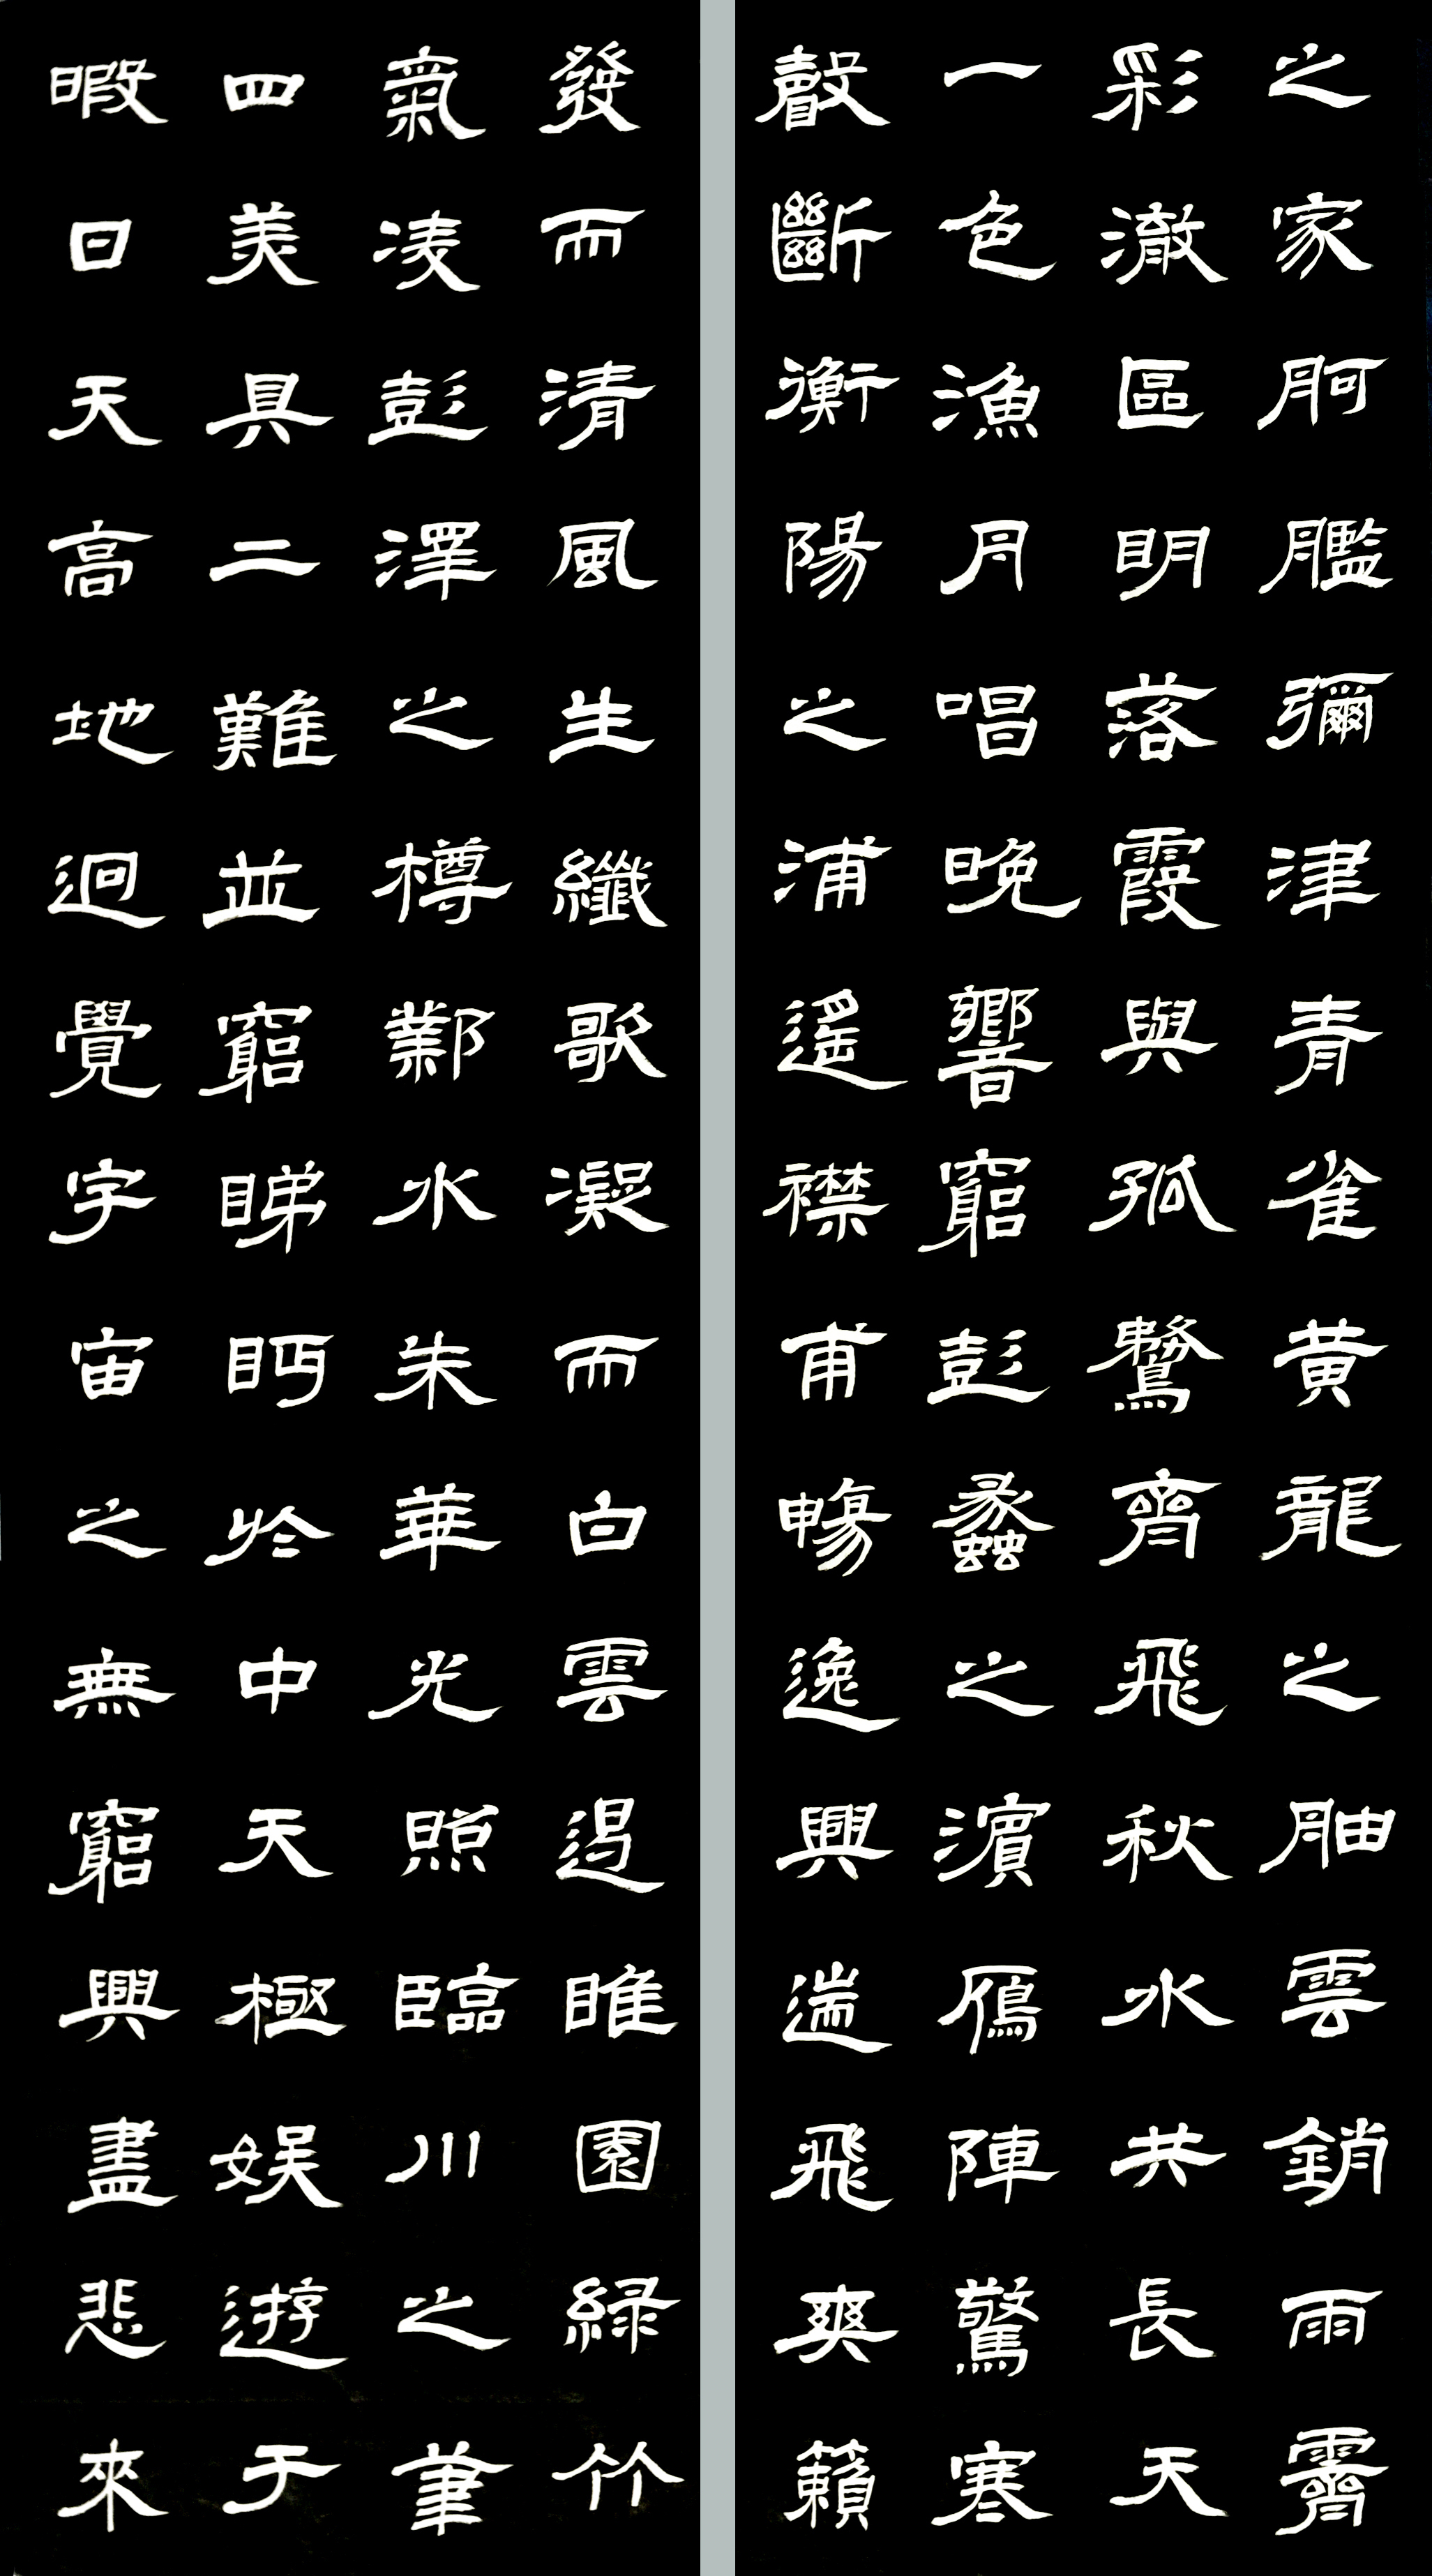 之家舸艦彌津青雀黃龍之舳雲銷雨霽
彩澈區明落霞與孤鶩齊飛秋水共長天
一色漁舟唱晚響窮彭蠡之濱鴈陣驚寒
聲斷衡陽之浦遙襟甫暢逸興遄飛爽籟
發而清風生纖歌凝而白雲遏睢園綠竹
氣凌彭澤之樽鄴水朱華光照臨川之筆
四美具二難並窮睇眄於中天極娛遊于
暇日天高地迥覺宇宙之無窮興盡悲來